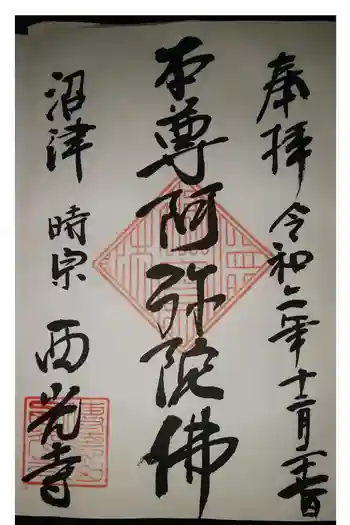 奉拝 令和二年十二月二十二日
本尊阿弥陀佛
沼津 時宗 西光寺